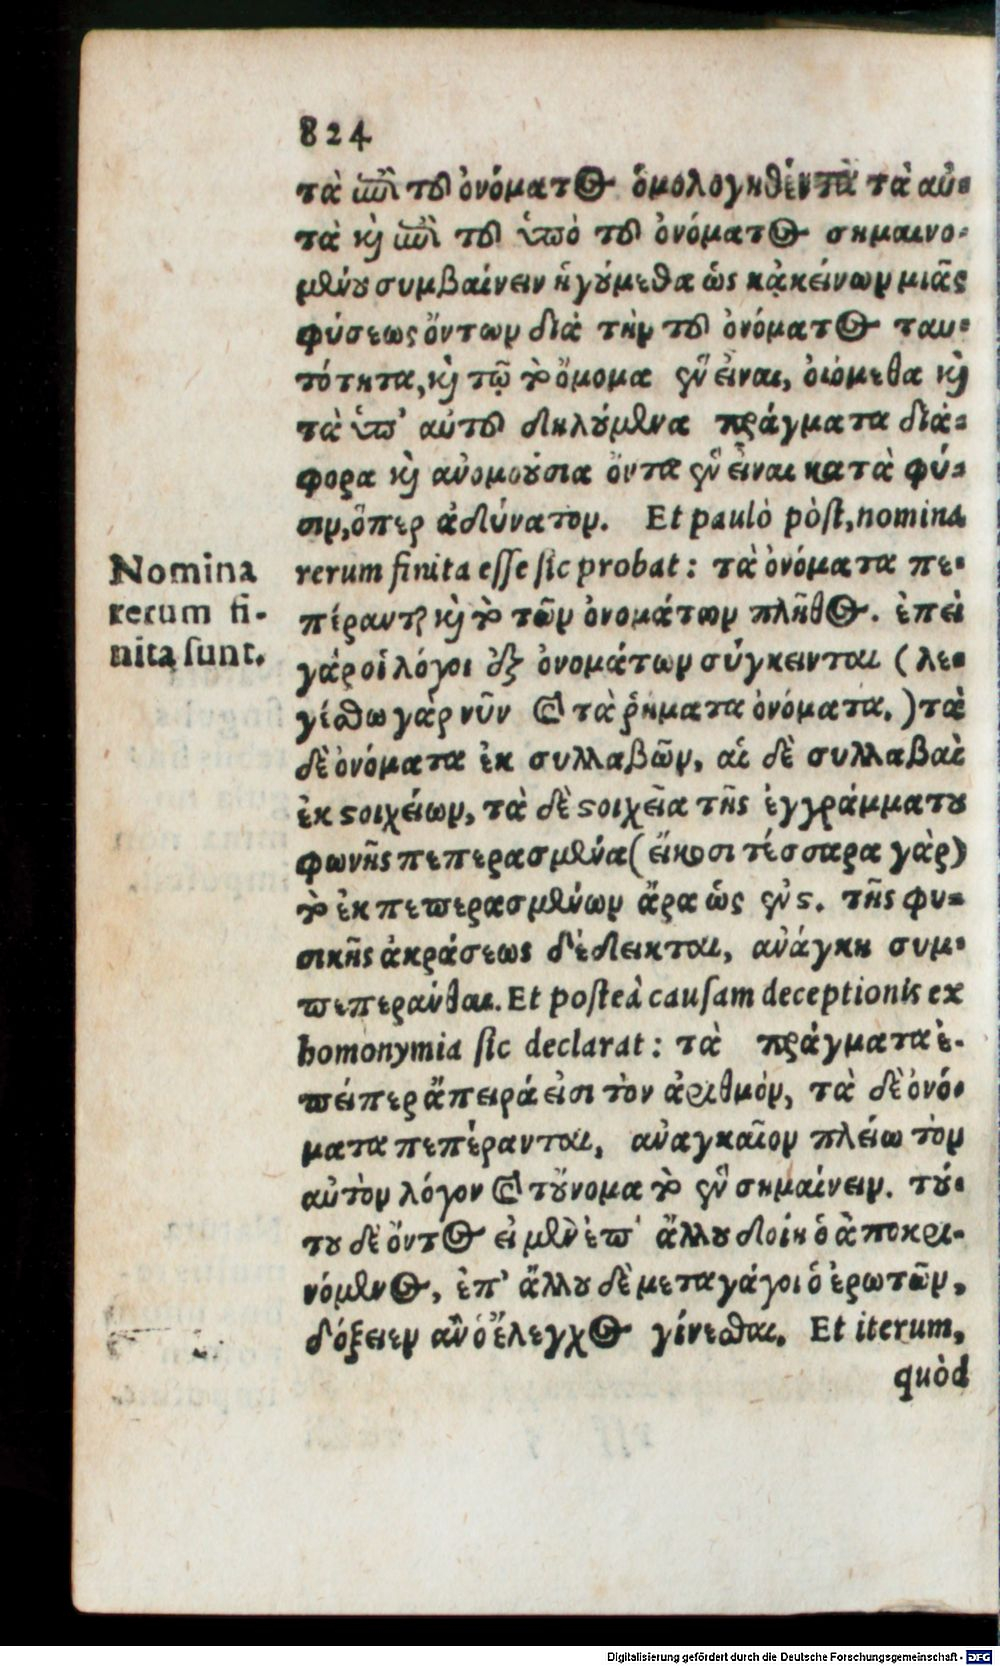 824
τὰ ἐπὶ τοῦ ὀνόματος ὁμολογηθέντα τὰ αὐ-
τὰ καὶ ἐπὶ τοῦ ὑπὸ τοῦ ὀνόματος σημαινο-
μένου συμβαίνειν ἡγούμεθα ὡς κἀκείνων μιᾶς
φύσεως ὄντων διὰ τὴν τοῦ ὀνόματος ταυ-
τότητα, καὶ τῷ τὸ ὄνομα ἓν εἶναι, οἰόμεθα καὶ
τὰ ὑπ' αὐτοῦ δηλούμενα πράγματα διά-
φορα καὶ ἀνομούσια ὄντα ἓν εἶναι κατὰ φύ-
σιν, ὅπερ ἀδύνατον. Et paulò pòst, nomina
Nomina
rerum fi-
nita sunt.
rerum finita esse sic probat: τὰ ὀνόματα πε-
πέρανται καὶ τὸ τῶν ὀνομάτων πλῆθος. ἐπεὶ
γάρ οἱ λόγοι ἐξ ὀνομάτων σύγκεινται (λε-
γέσθω γὰρ νῦν καὶ τὰ ῥήματα ὀνόματα.) τὰ
δὲ ὀνόματα ἐκ συλλαβῶν, αἱ δὲ συλλαβαὶ
ἐκ στοιχείων, τὰ δὲ στοιχεῖα τῆς ἐγγράμματου
φωνῆς πεπερασμένα (εἴκοσι τέσσαρα γὰρ)
τὸ ἐκ πεπερασμένων ἄρα ὡς ἐν ϛ. τῆς φυ-
σικῆς ἀκράσεως δέδεικται, ἀνάγκη συμ-
πεπεράνθαι. Et posteà causam deceptionis ex
homonymia sic declarat: τὰ πράγματα ἐ-
πείπερ ἄπειρά εἰσι τὸν ἀριθμὸν, τὰ δὲ ὀνό-
ματα πεπέρανται, ἀναγκαῖον πλείω τὸν
αὐτὸν λόγον καὶ τοὔνομα τὸ ἓν σημαίνειν. τού-
του δὲ ὄντος εἰ μὲν ἐπ' ἄλλου δοίη ὁ ἀποκρι-
νόμενος, ἐπ' ἄλλου δὲ μεταγάγοι ὁ ἐρωτῶν,
δόξειεν ἂν ὁ ἔλεγχος γίνεσθαι. Et iterum,
quòd
Digitalisierung gefördert durch die Deutsche Forschungsgemeinschaft - DFG